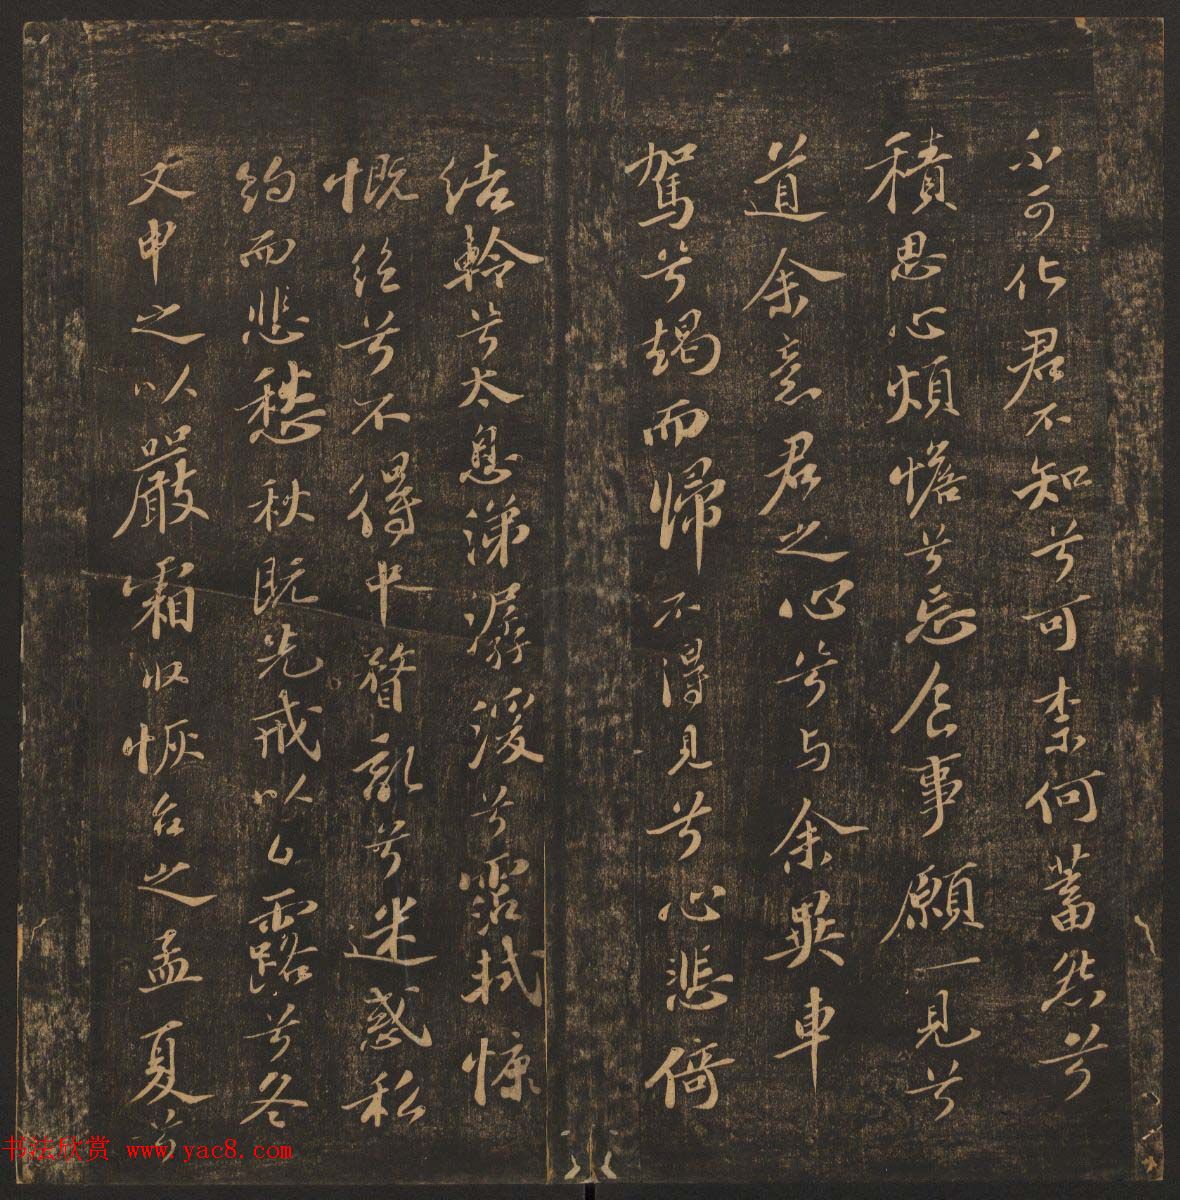 不可化君不知兮可柰何蓄怨兮
積思心煩憺兮忘食事願一見兮
道余意君之心兮与余異車
駕兮朅而歸不得見兮心悲倚
结軨兮太息涕潺湲兮霑軾慷
慨絕兮不得中瞀亂兮迷惑私
約而悲愁秋既先戒以白露兮冬
又申之以嚴霜收恢台之孟夏兮
书法欣赏 www.yac8.com